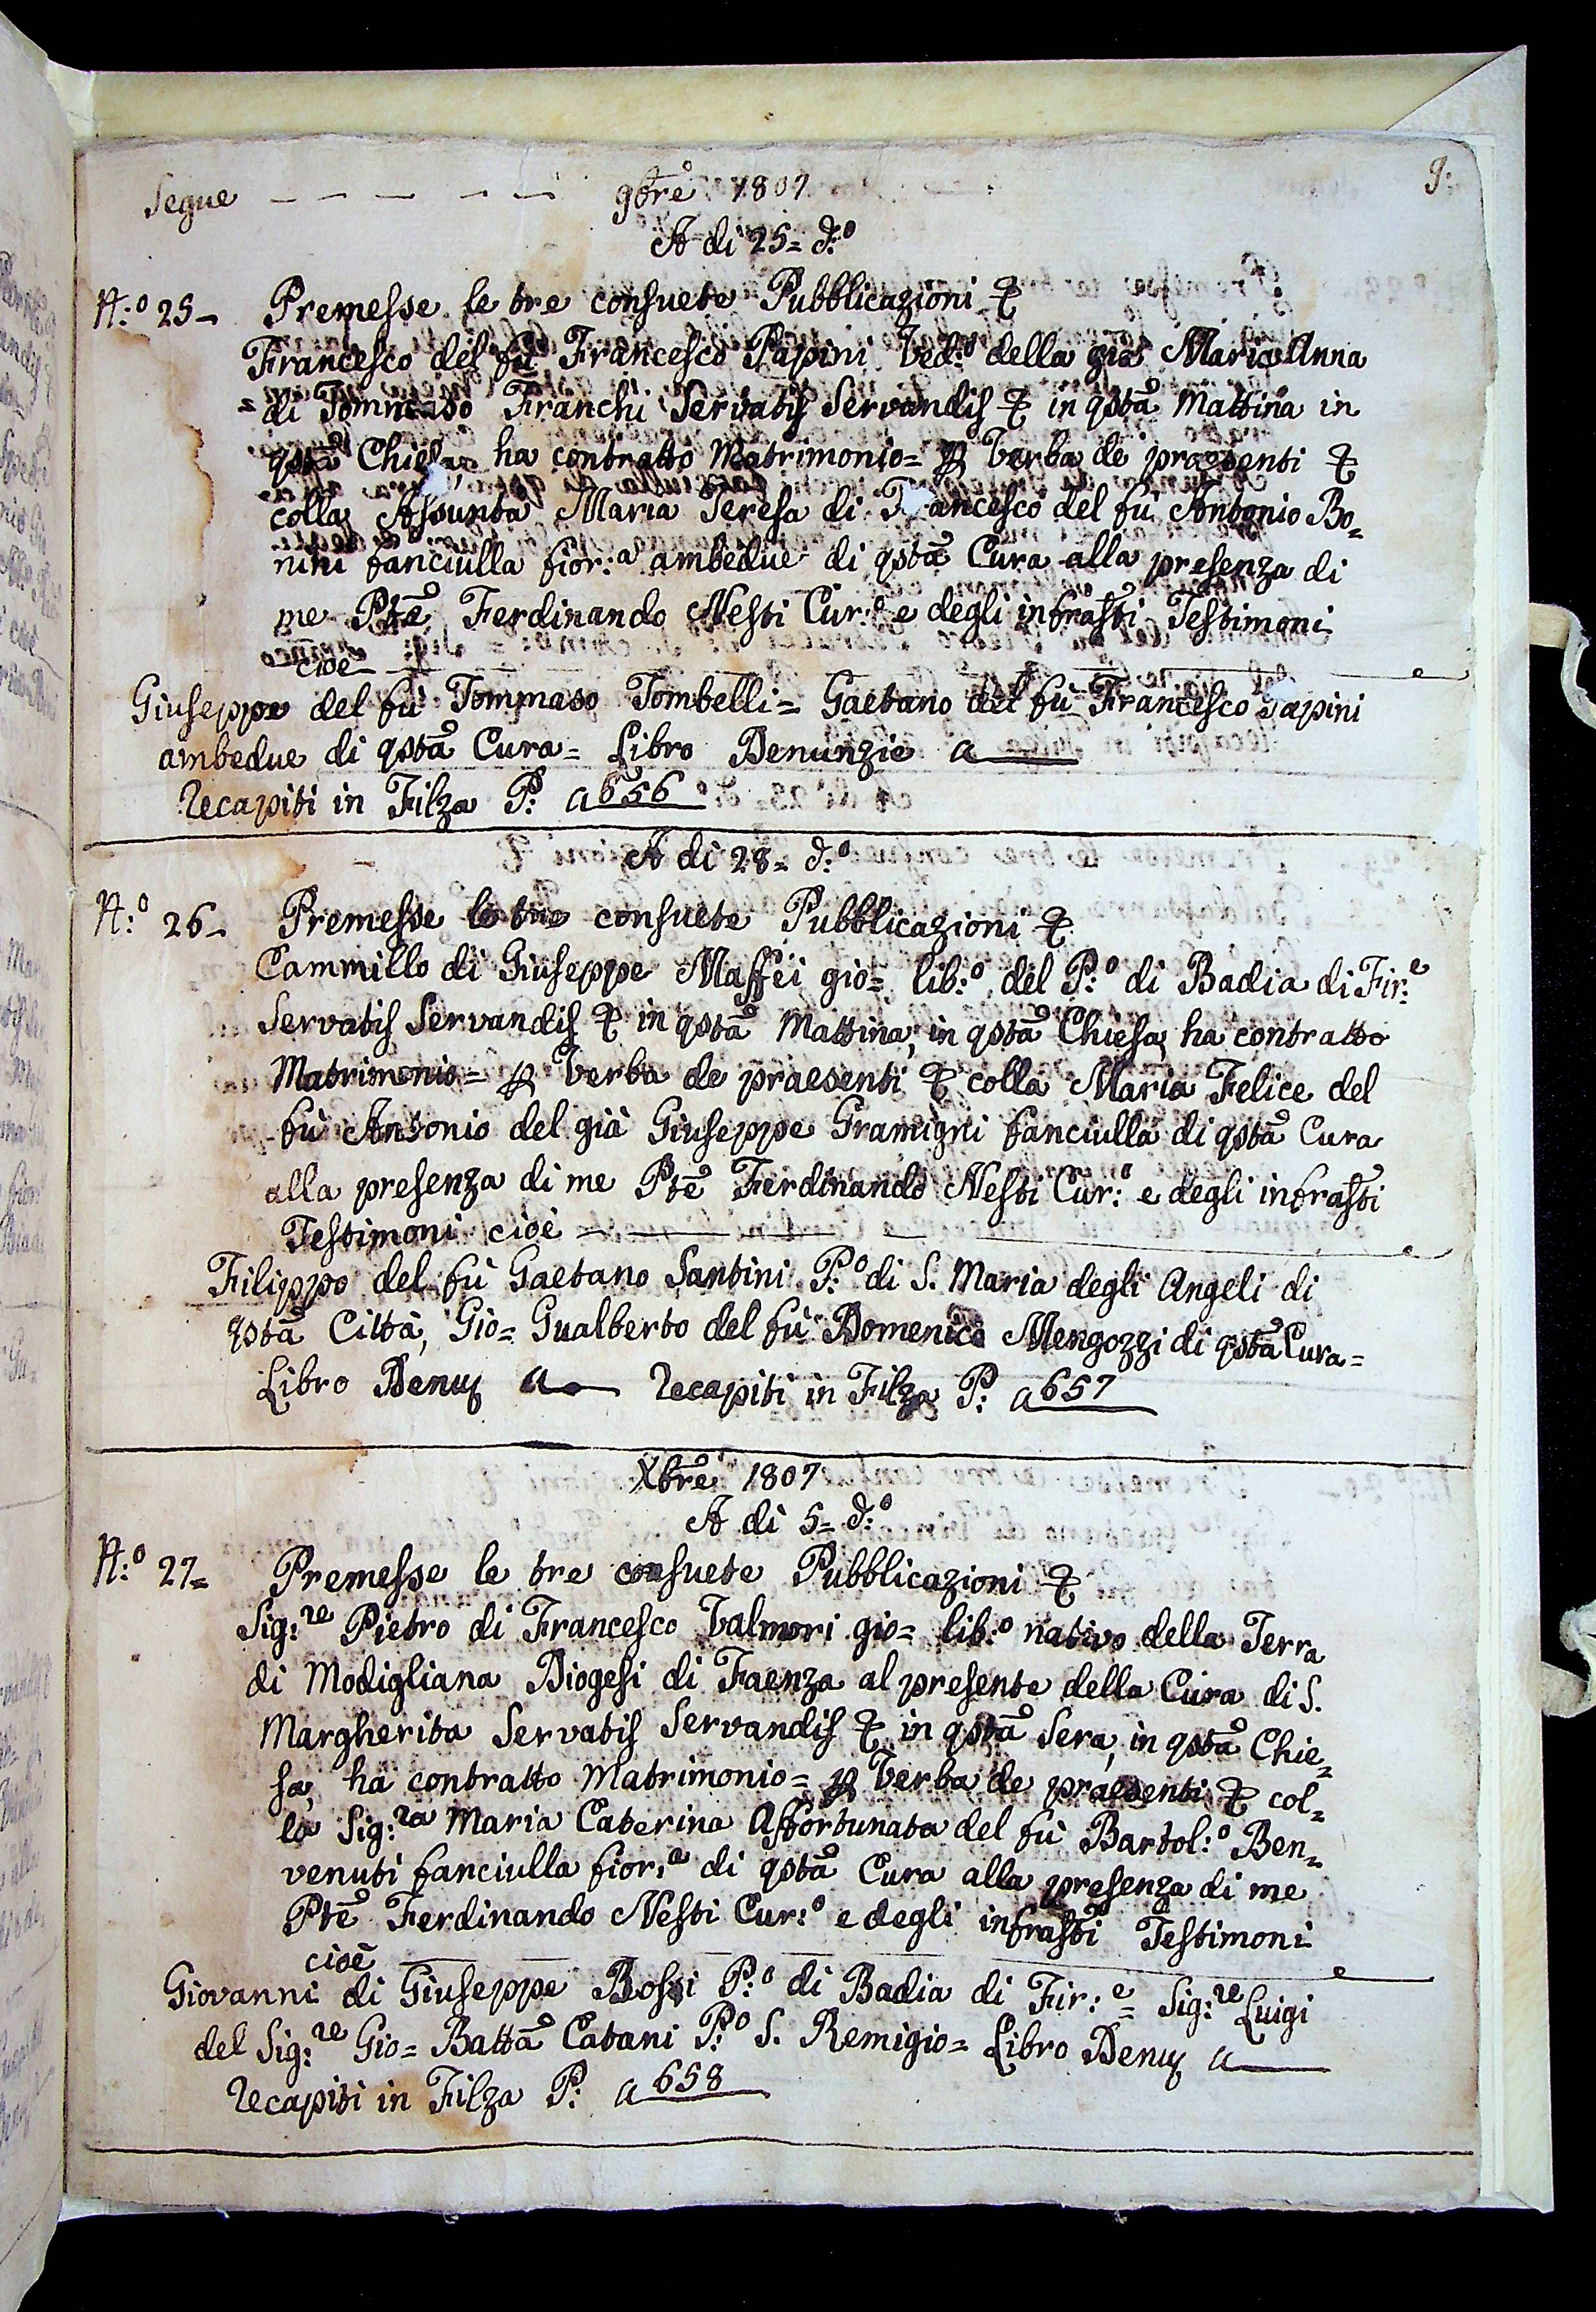 Segue — — — — — 9bre 1807 9:
A di 25= d:o
N:o 25= Premesse le tre consuete Pubblicazioni &
Francesco del fù Francesco Papini Ved:o della già Maria Anna
= di Tommaso Franchi Servatis Servandis & in qsta Mattina in
qsta Chiesa, ha contratto Matrimonio= p Verba de praesenti &
colla Assunta Maria Teresa di Francesco del fù Antonio Bo=
nini fanciulla fior:a ambedue di qsta Cura alla presenza di
me Pte Ferdinando Nesti Cur:o e degli infrasti Testimoni
cioè
Giuseppe del fù Tommaso Tombelli= Gaetano del fù Francesco Papini
ambedue di qsta Cura= Libro Denunzie a
Recapiti in Filza P: a 656
A di 28= d:o
N:o 26= Premesse le tre consuete Pubblicazioni &
Cammillo di Giuseppe Maffei gio= lib:o del P:o di Badia di Fir:e
Servatis Servandis & in qsta Mattina, in qsta Chiesa, ha contratto
Matrimonio= p Verba de praesenti & colla Maria Felice del
fù Antonio del già Giuseppe Gramigni fanciulla di qsta Cura
alla presenza di me Pte Ferdinando Nesti Cur:o e degli infrasti
Testimoni cioè
Filippo del fù Gaetano Santini P:o di S. Maria degli Angeli di
qsta Città, Gio= Gualberto del fù Domenico Mengozzi di qsta Cura=
Libro Denuz a — Recapiti in Filza P: a 657
Xbre 1807
A di 5= d:o
N:o 27= Premesse le tre consuete Pubblicazioni &
Sig:re Pietro di Francesco Valmori gio= lib:o nativo della Terra
di Modigliana Diogesi di Faenza al presente della Cura di S.
Margherita Servatis Servandis & in qsta Sera, in qsta Chie=
sa, ha contratto Matrimonio= p Verba de praesenti & col=
la Sig:ra Maria Caterina Affortunata del fù Bartol:o Ben=
venuti fanciulla fior:a di qsta Cura alla presenza di me
Pte Ferdinando Nesti Cur:o e degli infrasti Testimoni
cioè
Giovanni di Giuseppe Bossi P:o di Badia di Fir:e = Sig:re Luigi
del Sig:re Gio= Batta Catani P:o S. Remigio= Libro Denuz a
Recapiti in Filza P: a 658